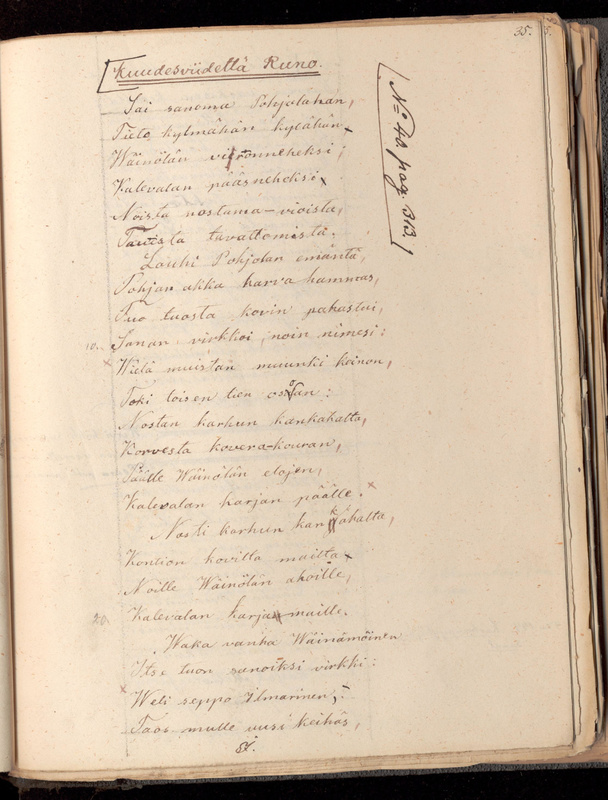 35.
Kuudesviidettä Runo.
N:o 40 pag. 313
Sai sanoma Pohjolahan,
Tieto kylmähän kylähän
Wäinölän vironneheksi;
Kalevalan pääsneheksi
Noista nostama-vioista,
Tauista tavattomista.
Louhi Pohjolan emäntä,
Pohjan akka harva hammas,
Tuo tuosta kovin pahastui,
10. Sanan virkkoi, noin nimesi:
Wielä muistan muunki keinon,
Toki toisen tien osoan:
Nostan karhun kankahalta,
Korvesta kovera-kouran,
Päälle Wäinölän elojen,
Kalevalan karjan päälle.
Nosti karhun kankahalta,
Kontion kovilta mailta
Noille Wäinölän ahoille,
20. Kalevalan karjamaille.
Waka vanha Wäinämöinen
Itse tuon sanoiksi virkki:
Weli seppo Ilmarinen,
Taos mulle uusi keihäs,